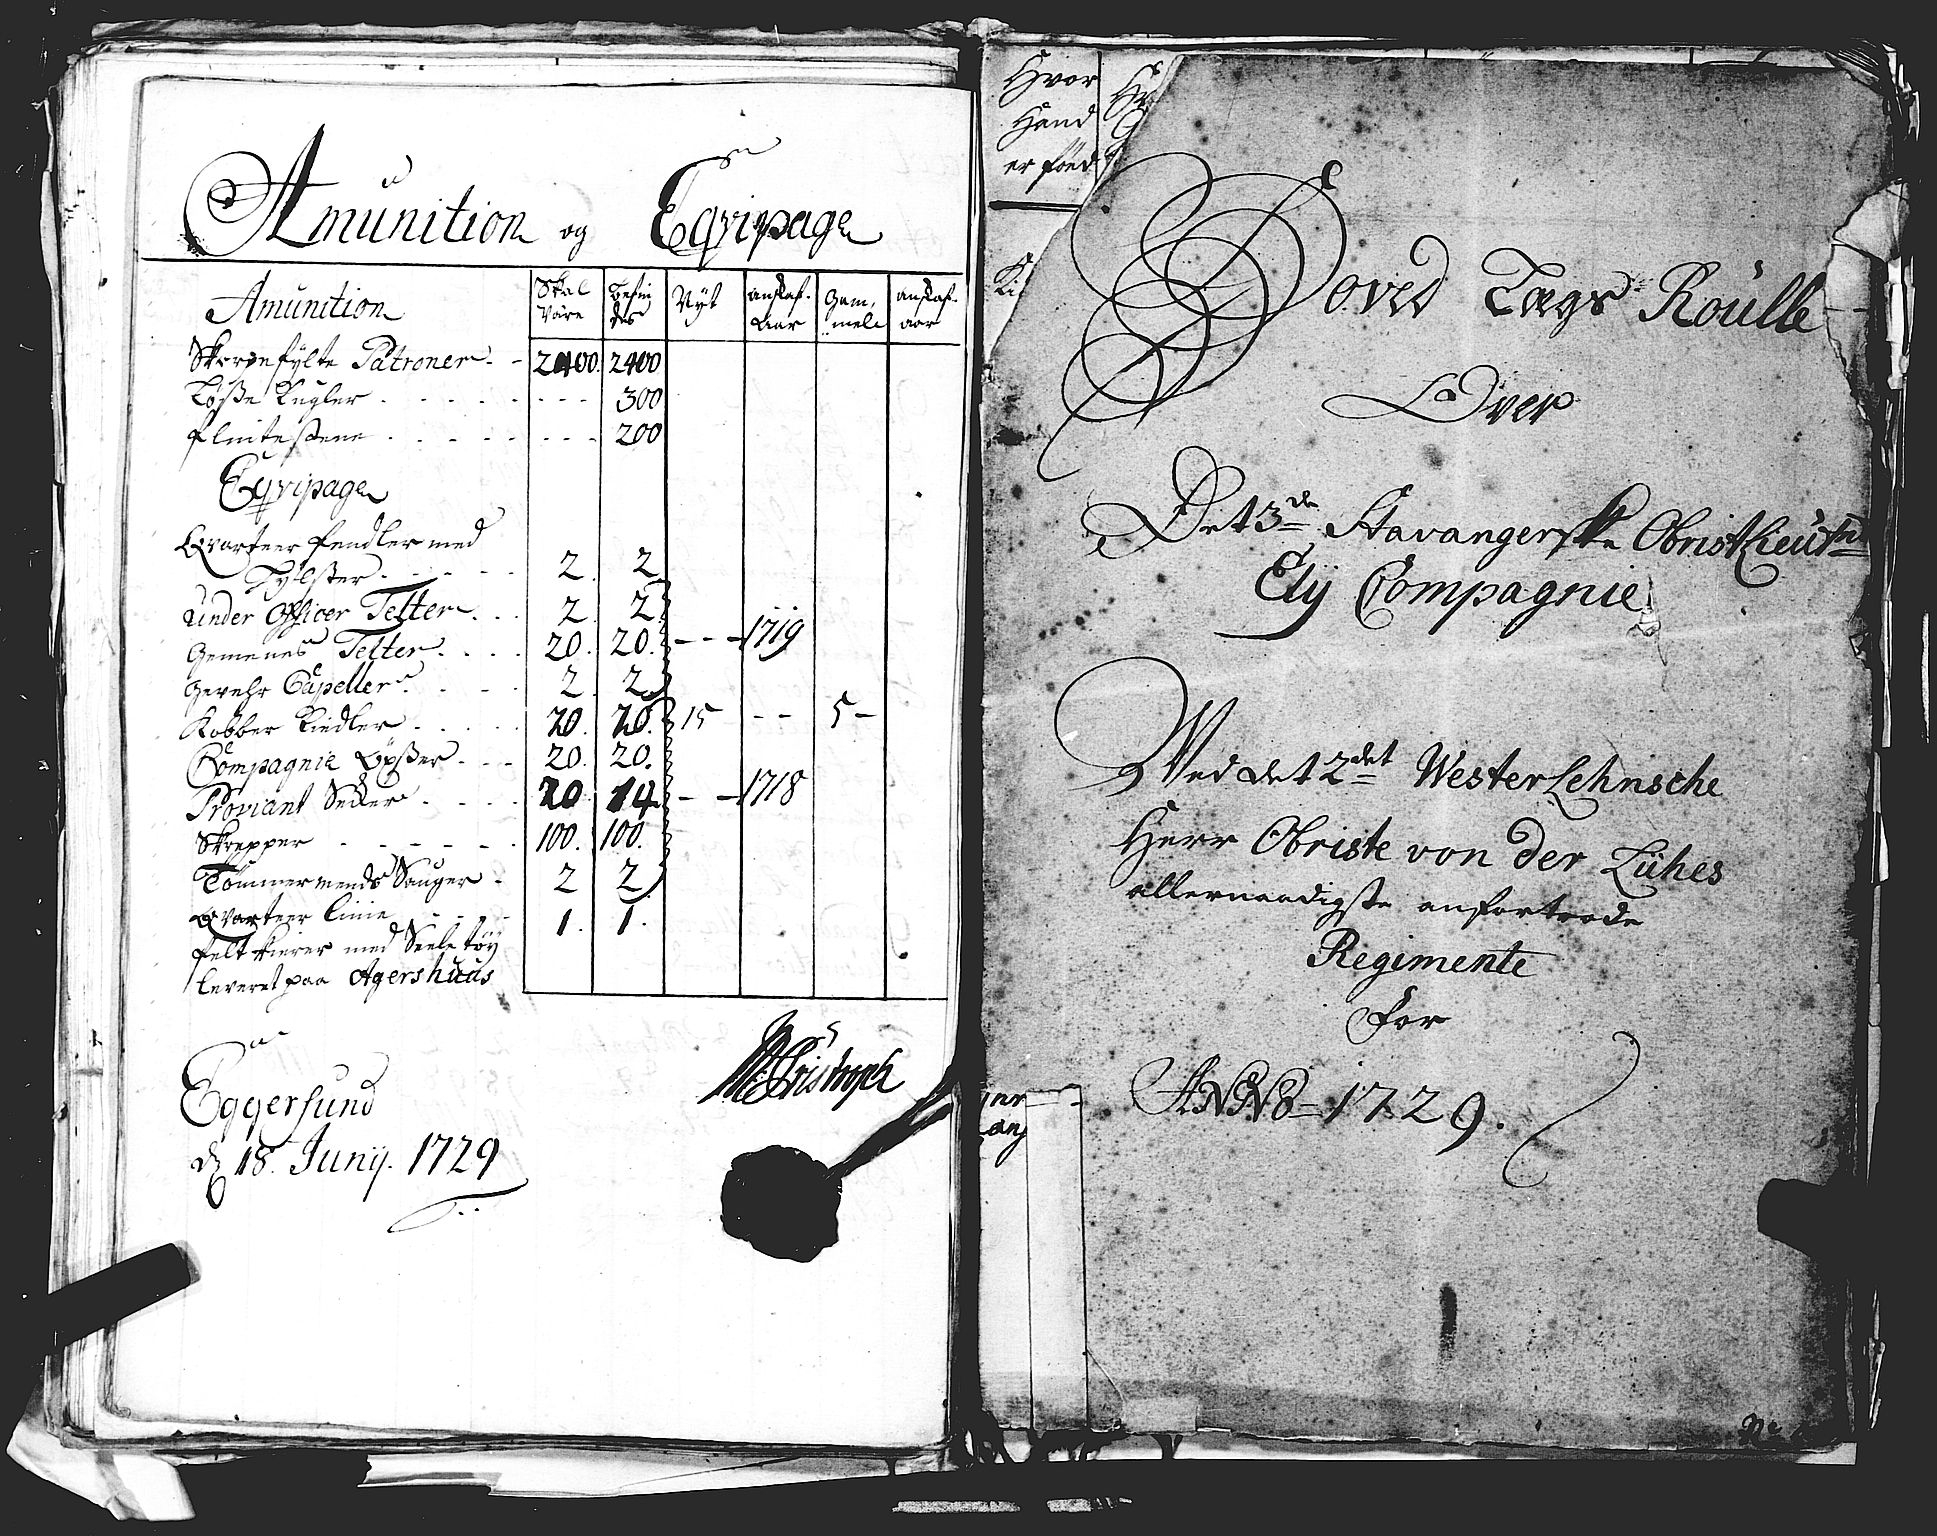 Amunition og Eqvipage
Amunition
Skal være
Befindes
Nyt
anskaf. Aar
Gammel
anskaf. aar
Skarpefylte Patroner 2400. 2400
Løsse Kugler 300
flintestene 200
Eqvipage
Qvarteer fendler med
Tylster 2. 2
under Officer Telter 2. 2
Gemenes Telter 20. 20. 1719
Gevehr Capeller 2. 2
Kobber Kiedler 20. 20. 15 5
Compagnie Øxser 20. 20.
Proviant Secker 20 14 1718
Skrepper 100. 100.
Tømmermends Sauger 2 2
Qvarteer linie 1. 1.
felt kierer med Seeletøy
leveret paa Agershuus
Eggersund
d 18. Junij. 1729
Hvor
Hand
er føed
Hoved Tægs Roulle
Over
Det 3de Stavangerske Obristlieutn
Ely Compagnie
Ved det 2det Westerlehnsche
Herr Obriste von der Lühes
allernaadigste anfortrode
Regimente
For
ANNO 1729.